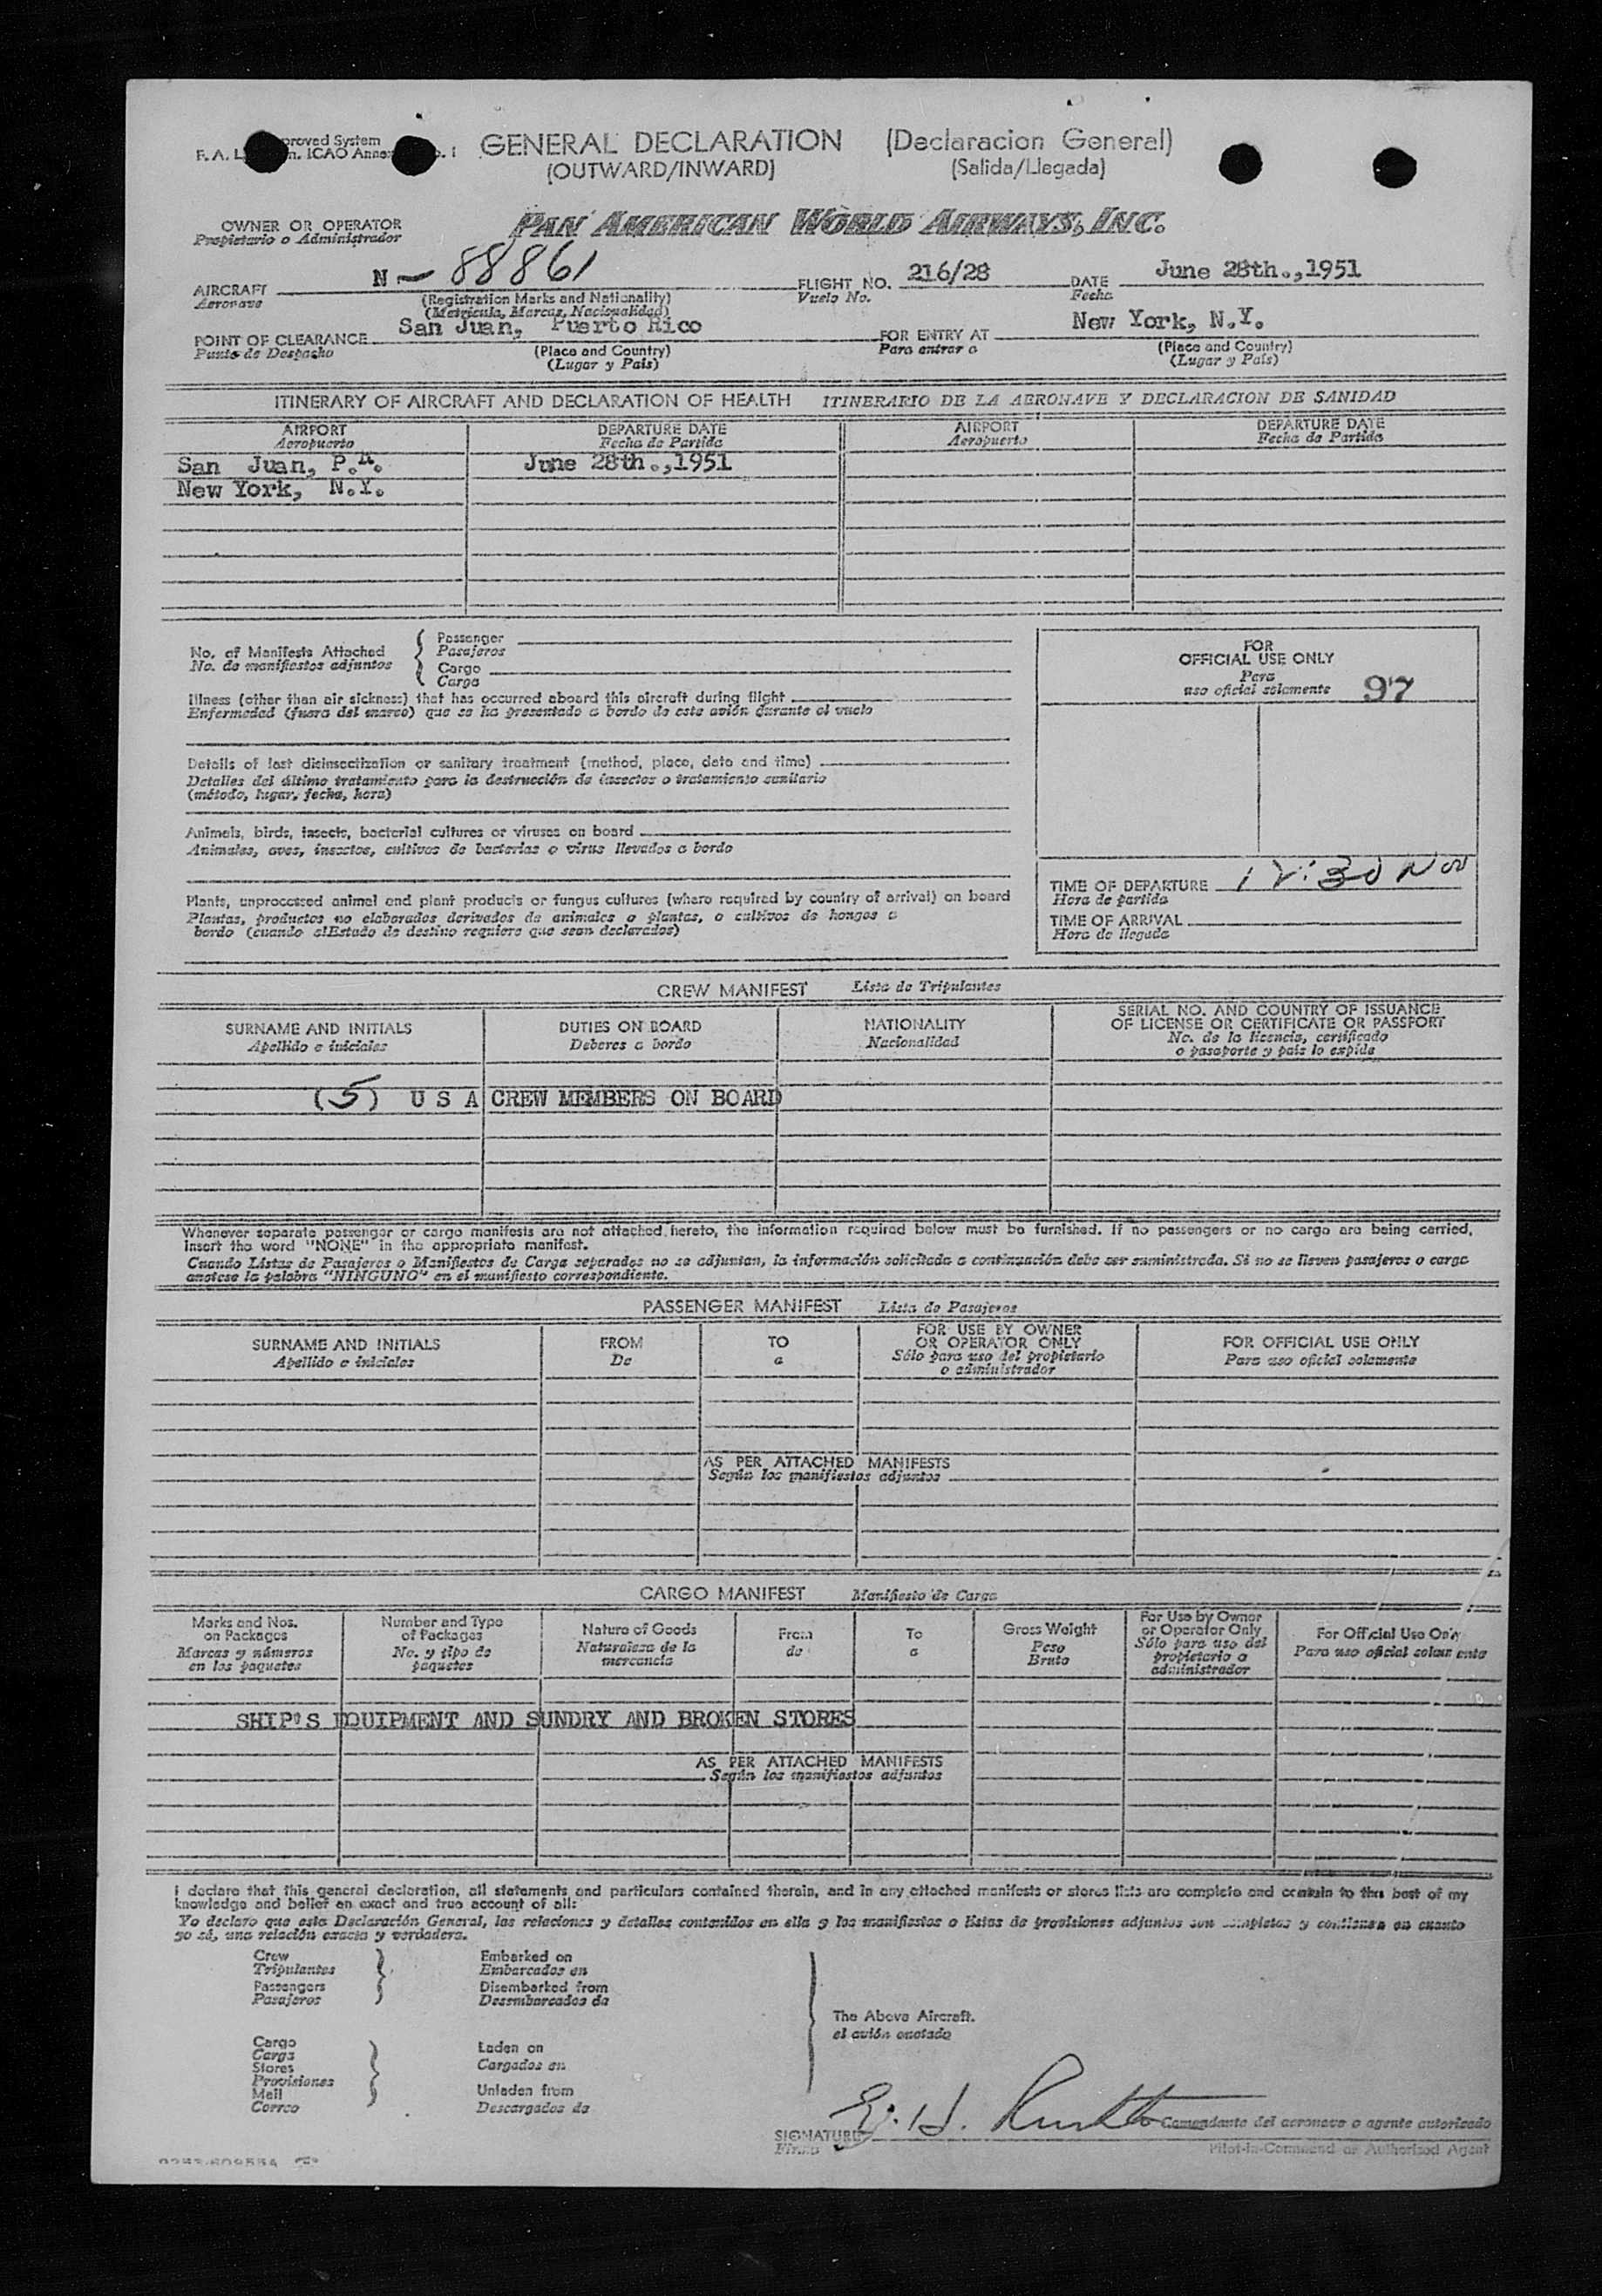 proved System
GENERAL DECLARATION (Declaracion General)
F. A. L. n. ICAO Annex o. 1
(OUTWARD/INWARD) (Salida/Llegada)
OWNER OR OPERATOR PAN AMERICAN WORLD AIRWAYS, INC.
Propietario o Administrador
AIRCRAFT N - 88861 FLIGHT NO. 216/28 DATE June 28th.,1951
Aeronave (Registration Marks and Nationality) Vuelo No. Fecha
(Matricula, Marcas, Nacionalidad)
POINT OF CLEARANCE San Juan, Puerto Rico FOR ENTRY AT New York, N.Y.
Punto de Despacho (Place and Country) Para entrar a (Place and Country)
(Lugar y País) (Lugar y País)
ITINERARY OF AIRCRAFT AND DECLARATION OF HEALTH ITINERARIO DE LA AERONAVE Y DECLARACION DE SANIDAD
AIRPORT DEPARTURE DATE AIRPORT DEPARTURE DATE
Aeropuerto Fecha de Partida Aeropuerto Fecha de Partida
San Juan, P.R. June 28th.,1951
New York, N.Y.
No. of Manifests Attached
No. de manifiestos adjuntos
Passenger
Pasajeros
Cargo
Carga
Illness (other than air sickness) that has occurred aboard this aircraft during flight
Enfermedad (fuera del mareo) que se ha presentado a bordo de este avión durante el vuelo
Details of last disinsectization or sanitary treatment (method, place, date and time)
Detalles del último tratamiento para la destrucción de insectos o tratamiento sanitario
(método, lugar, fecha, hora)
Animals, birds, insects, bacterial cultures or viruses on board
Animales, aves, insectos, cultivos de bacterias o virus llevados a bordo
Plants, unprocessed animal and plant products or fungus cultures (where required by country of arrival) on board
Plantas, productos no elaborados derivados de animales o plantas, o cultivos de hongos a
bordo (cuando elEstado de destino requiere que sean declarados)
FOR
OFFICIAL USE ONLY
Para
uso oficial solamente 97
TIME OF DEPARTURE 12:30
Hora de partida
TIME OF ARRIVAL
Hora de llegada
CREW MANIFEST Lista de Tripulantes
SURNAME AND INITIALS DUTIES ON BOARD NATIONALITY SERIAL NO. AND COUNTRY OF ISSUANCE
Apellido e iniciales Deberes a bordo Nacionalidad OF LICENSE OR CERTIFICATE OR PASSPORT
No. de la licencia, certificado
o pasaporte y país lo expide
(5) U S A CREW MEMBERS ON BOARD
Whenever separate passenger or cargo manifests are not attached hereto, the information required below must be furnished. If no passengers or no cargo are being carried,
insert the word "NONE" in the appropriate manifest.
Cuando Listas de Pasajeros o Manifiestos de Carga separados no se adjuntan, la información solicitada a continuación debe ser suministrada. Si no se lleven pasajeros o carga
anotese la palabra "NINGUNO" en el munifiesto correspondiente.
PASSENGER MANIFEST Lista de Pasajeros
SURNAME AND INITIALS FROM TO FOR USE BY OWNER FOR OFFICIAL USE ONLY
Apellido e iniciales De a OR OPERATOR ONLY Para uso oficial solamente
Sólo para uso del propietario
o administrador
AS PER ATTACHED MANIFESTS
Según los manifiestos adjuntos
CARGO MANIFEST Manifiesto de Carga
Marks and Nos. Number and Type Nature of Goods From To Gross Weight For Use by Owner For Official Use Only
on Packages of Packages Naturaleza de la de a Peso or Operator Only Para uso oficial solamente
Marcas y números No. y tipo de mercancia Bruto Sólo para uso del
en los paquetes paquetes propietario o
administrador
SHIP'S EQUIPMENT AND SUNDRY AND BROKEN STORES
AS PER ATTACHED MANIFESTS
Según los manifiestos adjuntos
I declare that this general declaration, all statements and particulars contained therein, and in any attached manifests or stores lists are complete and contain to the best of my
knowledge and belief an exact and true account of all:
Yo declaro que esta Declaración General, las relaciones y detalles contenidos en ella y los manifiestos o listas de provisiones adjuntos son completos y contienen en cuanto
yo sé, una relación exacta y verdadera.
Crew Embarked on
Tripulantes Embarcados en
Passengers Disembarked from
Pasajeros Desembarcados de
The Above Aircraft.
el avión anotado
Cargo Laden on
Carga Cargados en
Stores
Provisiones
Mail Unladen from
Correo Descargados de
SIGNATURE E. H. Comandante del aeronave o agente autorizado
Firma Pilot-in-Command or Authorized Agent